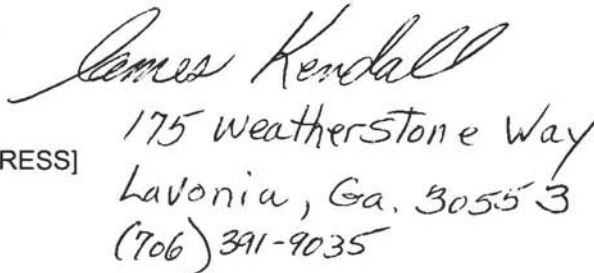 James Kendall
175 Weatherstone Way
RESS]
Lavonia, Ga. 30553
(706) 391-9035